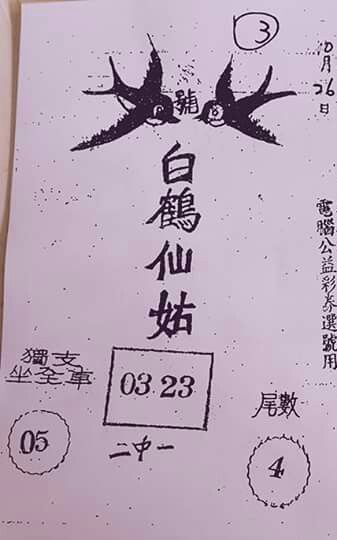 3
10月26日
號
8
白鶴仙姑
電腦公益彩券選號用
獨支
坐全車
05
03 23
二中一
尾數
4